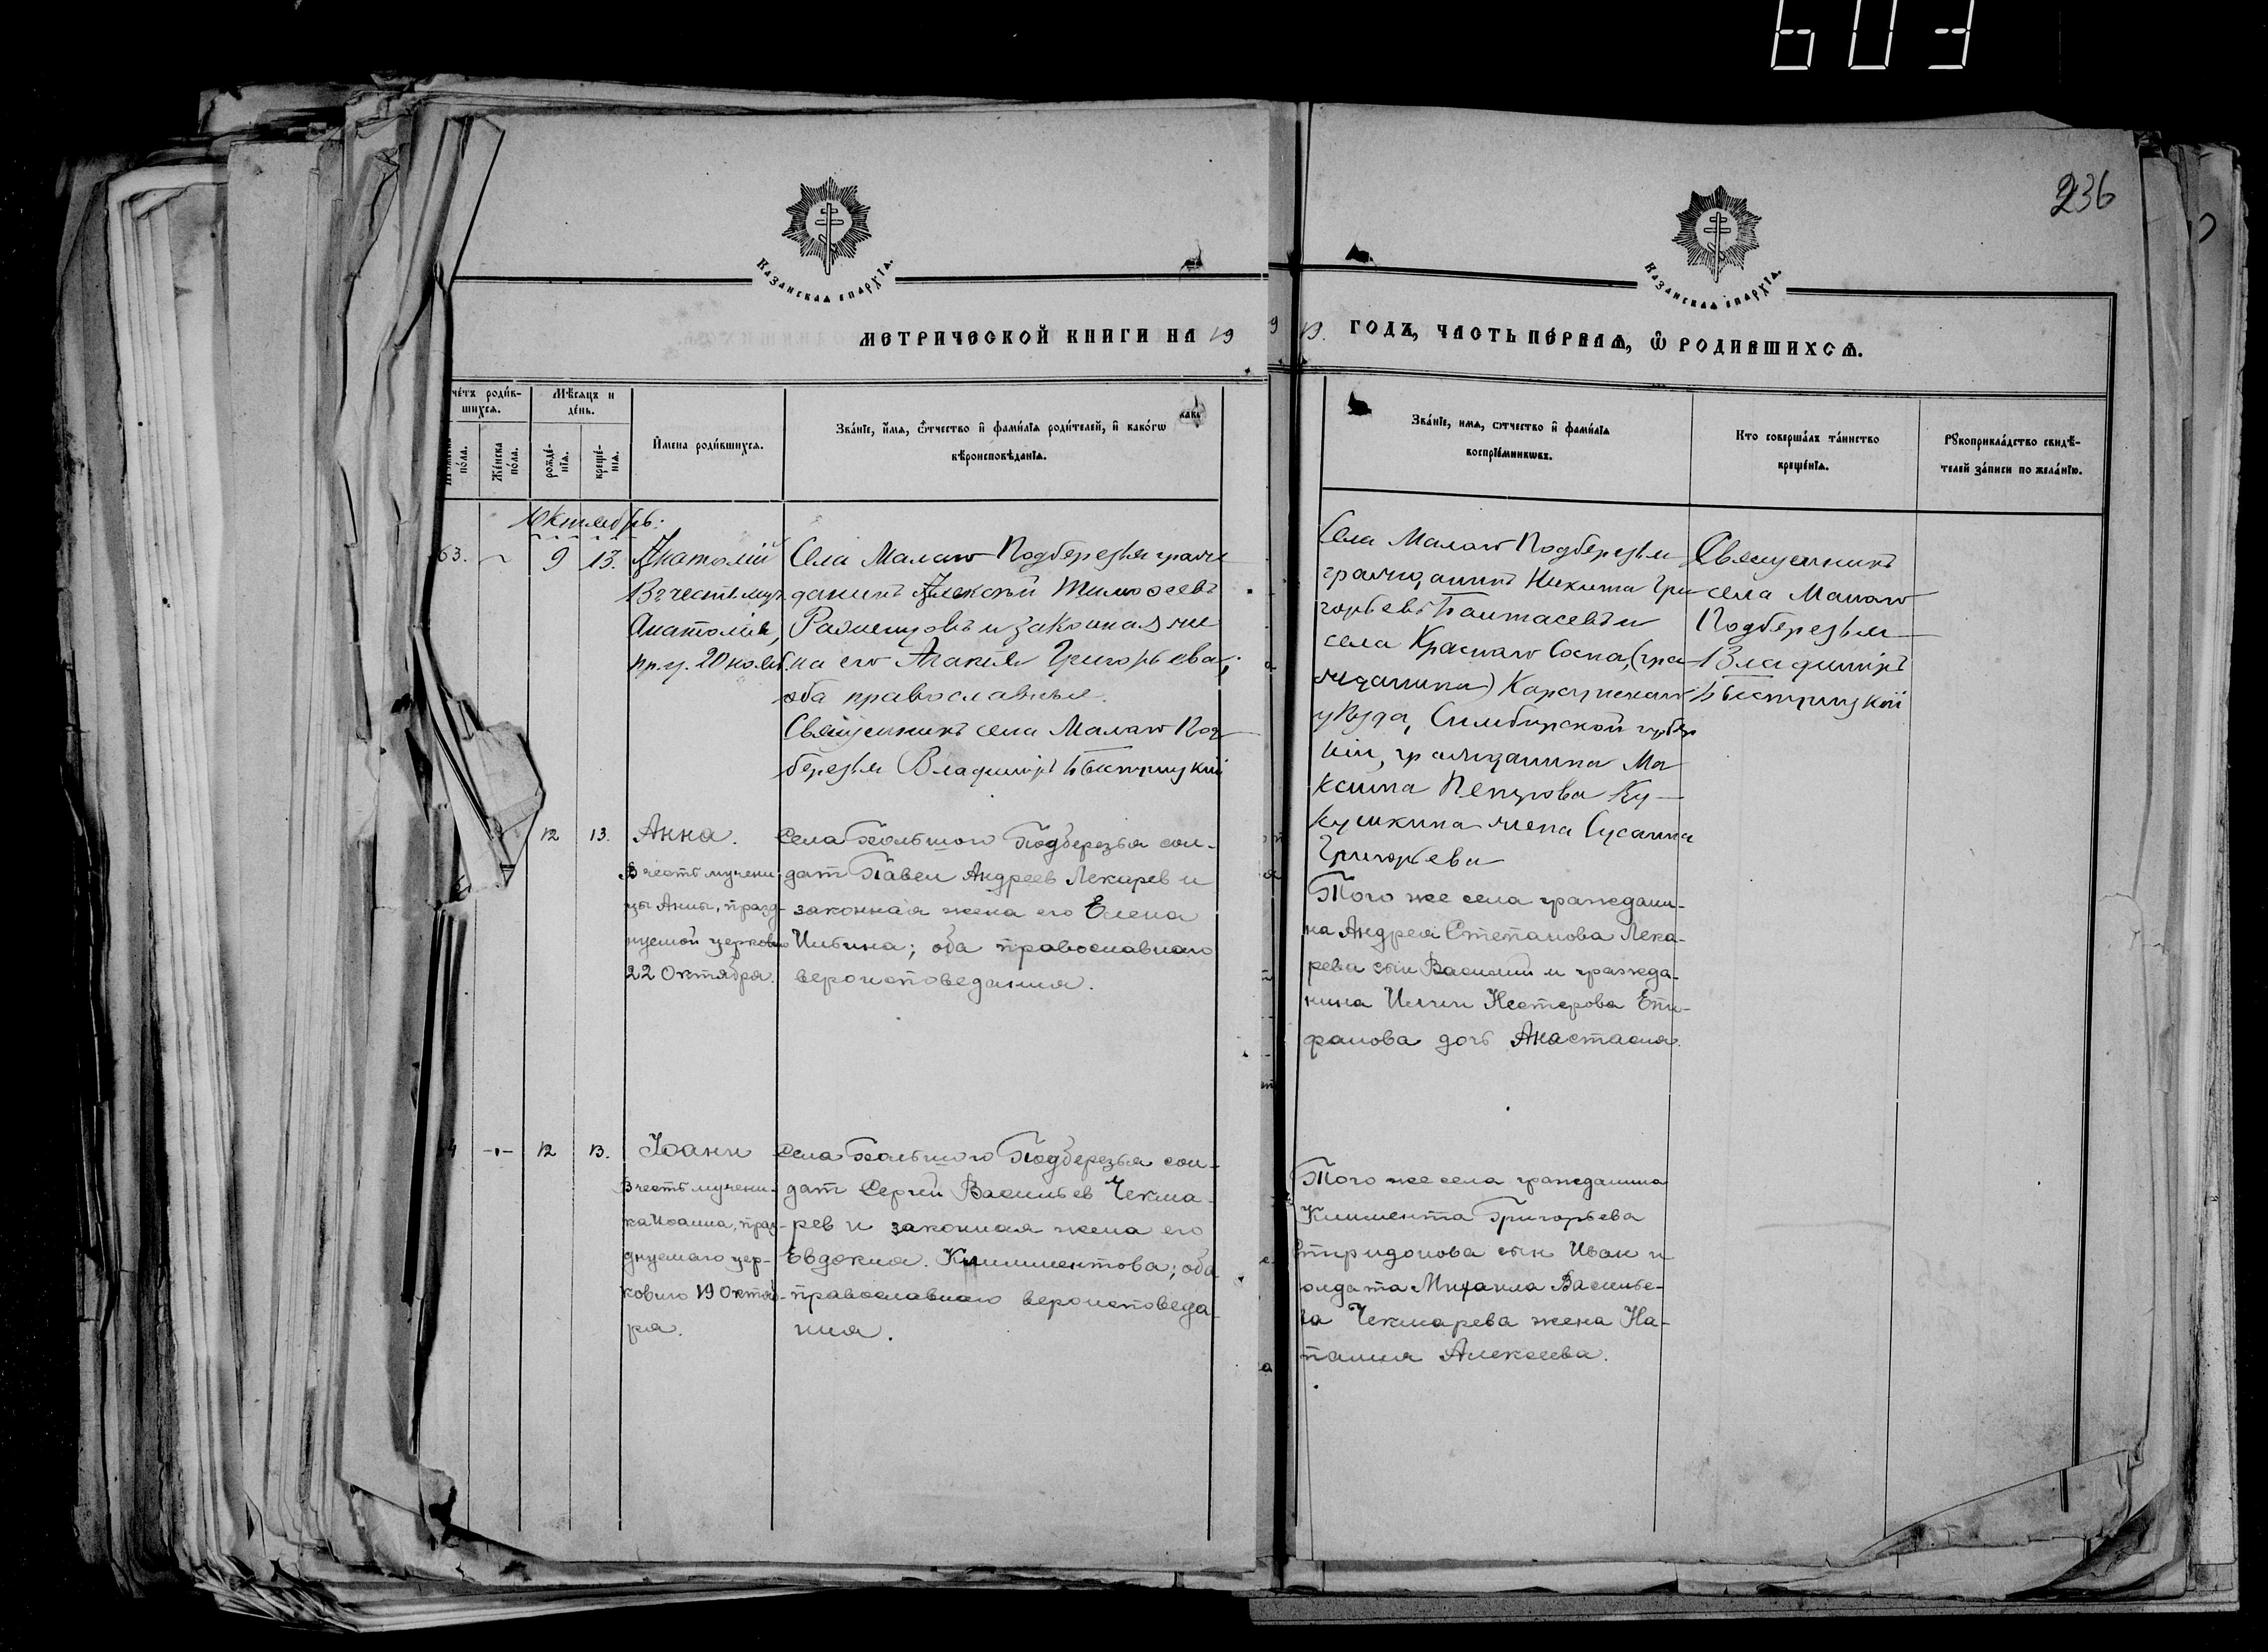 603
236
Казанская епархїя.
Казанская епархїя.
МЕТРИЧЕСКОЙ КНИГИ НА 19
19. ГОДЪ, ЧАСТЬ ПЕРВАЯ, Ѿ РОДИВШИХСЯ.
че́тъ роди́в-
шихся.
Мѣсяцъ и
де́нь.
по́ла.
Же́нска
по́ла.
рожде́-
нїя.
креще́-
нїя.
И҆мена роди́вшихся.
Зва́нїе, и҆мя, ѻ҆́тчество и҆ фами́лїя роди́телей, и҆ како́гѡ
вѣроисповѣ́данїя.
Зва́нїе, имя, ѻтчество и҆ фами́лїя
воспрїе́мникѡвъ.
Кто соверша́лъ та́инство
креще́нїя.
Рꙋкоприкла́дство свидѣ́-
телей за́писи по жела́нїю.
Октябрь.
63. 9 13. Анатолій
Въ честь муч.
Анатолія,
пр. ц. 20 нояб.
Села Малаго Подберезья граж
данинъ Алексѣй Тимоѳеевъ
и законная же
на его Агаѳія Григорьева;
оба православные.
Священникъ села Малаго Под
березья Владиміръ Быстрицкій
Села Малаго Подберезья
гражданинъ Никита Гри
горьевъ и
села Краснаго (гра
жданина) Карсунскаго
уѣзда, Симбирской губер
ніи, гражданина Ма
ксима Петрова Ку
кушкина жена Сусанна
Григорьева
Священникъ
села Малаго
Подберезья
Владиміръ
Быстрицкій
12 13. Анна.
В честь мучени
цы Анны, празд-
нуемой церковью
22 Октября.
Села Большого Подберезья сол-
дат Павел Андреев Лекарев и
законная жена его Елена
Ильина; оба православнаго
вероисповедания.
Того же села граждани-
на Андрея Степанова Лека-
рева сын Василий и гражда-
нина Илии Нестерова Епи-
фанова дочь Анастасия.
4 12 13. Иоанн
В честь мучени-
ка Иоанна, праз-
днуемаго цер-
ковью 19 Октяб-
ря.
Села Большого Подберезья сол-
дат Сергей Васильев Чекма-
рев и законная жена его
Евдокия Климентова; оба
православнаго вероисповеда-
ния.
Того же села гражданина
Климента Григорьева
Спиридонова сын Иван и
олдата Михаила Василье-
ва Чекмарева жена На-
талия Алексеева.